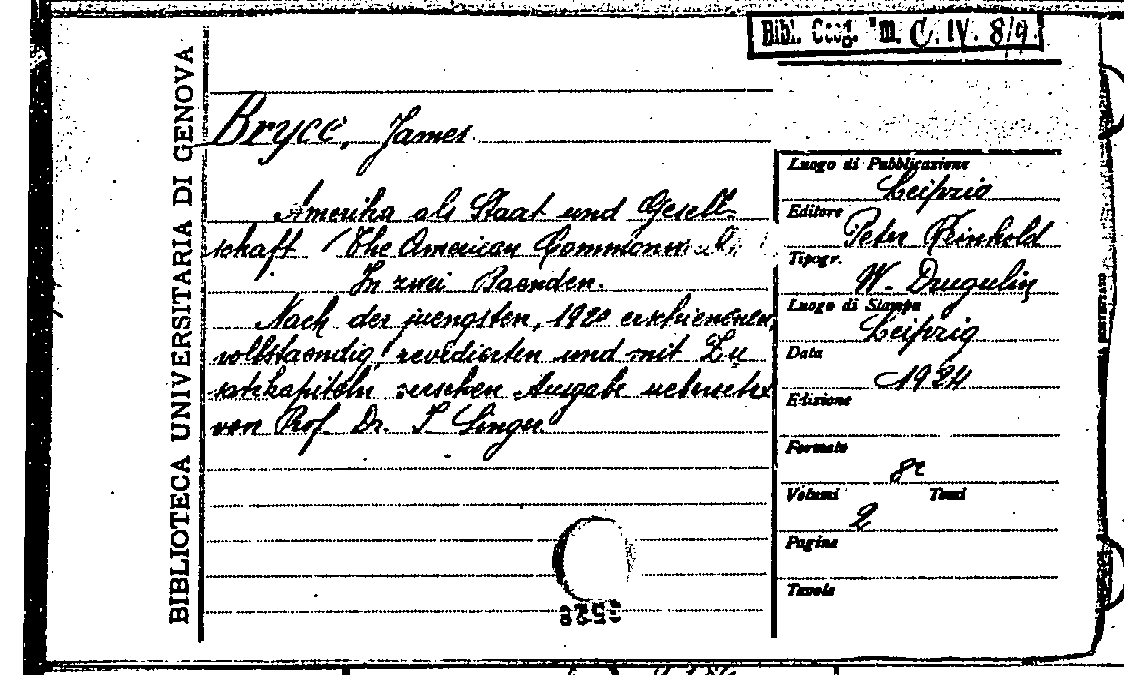 Bibl. Coog. "m. C. IV. 8/9.
BIBLIOTECA UNIVERSITARIA DI GENOVA
Bryce, James
Amerika als Staat und Gesell-
schaft / The American Commonw
In zwei Baenden.
Nach der juengsten, 1920 erschienenen,
vollstaendig revidierten und mit Zu
satzkapiteln versehen Ausgabe uebersetzt
von Prof. Dr. S. Singer
Luogo di Pubblicazione
Leipzig
Editore
Peter Reinhold
Tipogr.
W. Drugulin
Luogo di Stampa
Leipzig
Data
1924
Edizione
Formato
8°
Volumi 2 Tomi
Pagine
Tavole